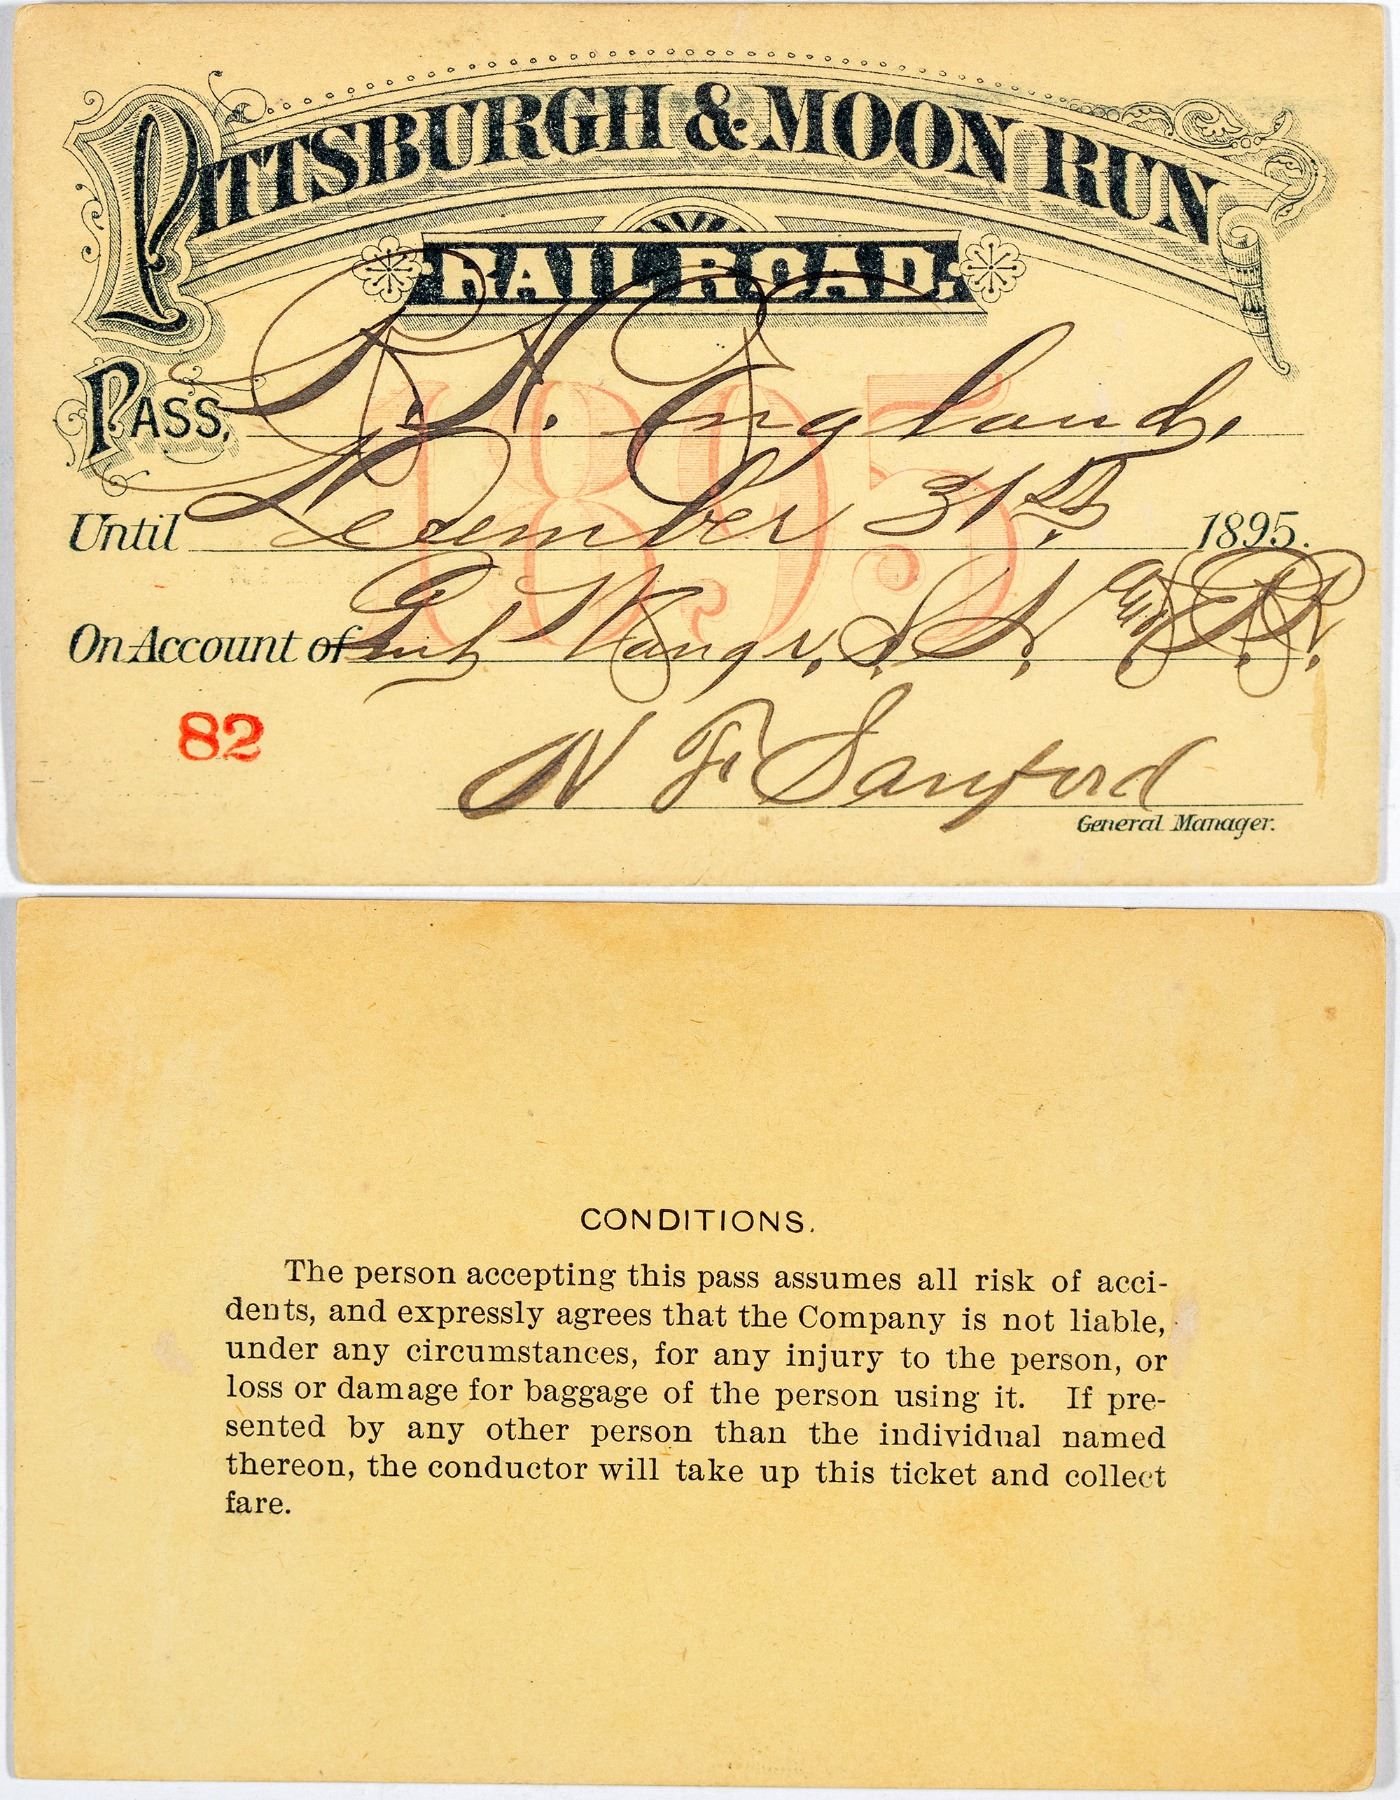 PITTSBURGH & MOON RUN
RAILROAD.
1895
PASS, H. England,
Until December 31st 1895.
On Account of Mangr, S. S. R.R.
82
N F Sanford
General Manager.
CONDITIONS.
The person accepting this pass assumes all risk of acci-
dents, and expressly agrees that the Company is not liable,
under any circumstances, for any injury to the person, or
loss or damage for baggage of the person using it. If pre-
sented by any other person than the individual named
thereon, the conductor will take up this ticket and collect
fare.